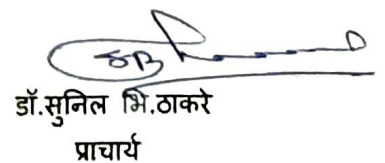 डॉ.सुनिल भि.ठाकरे
प्राचार्य